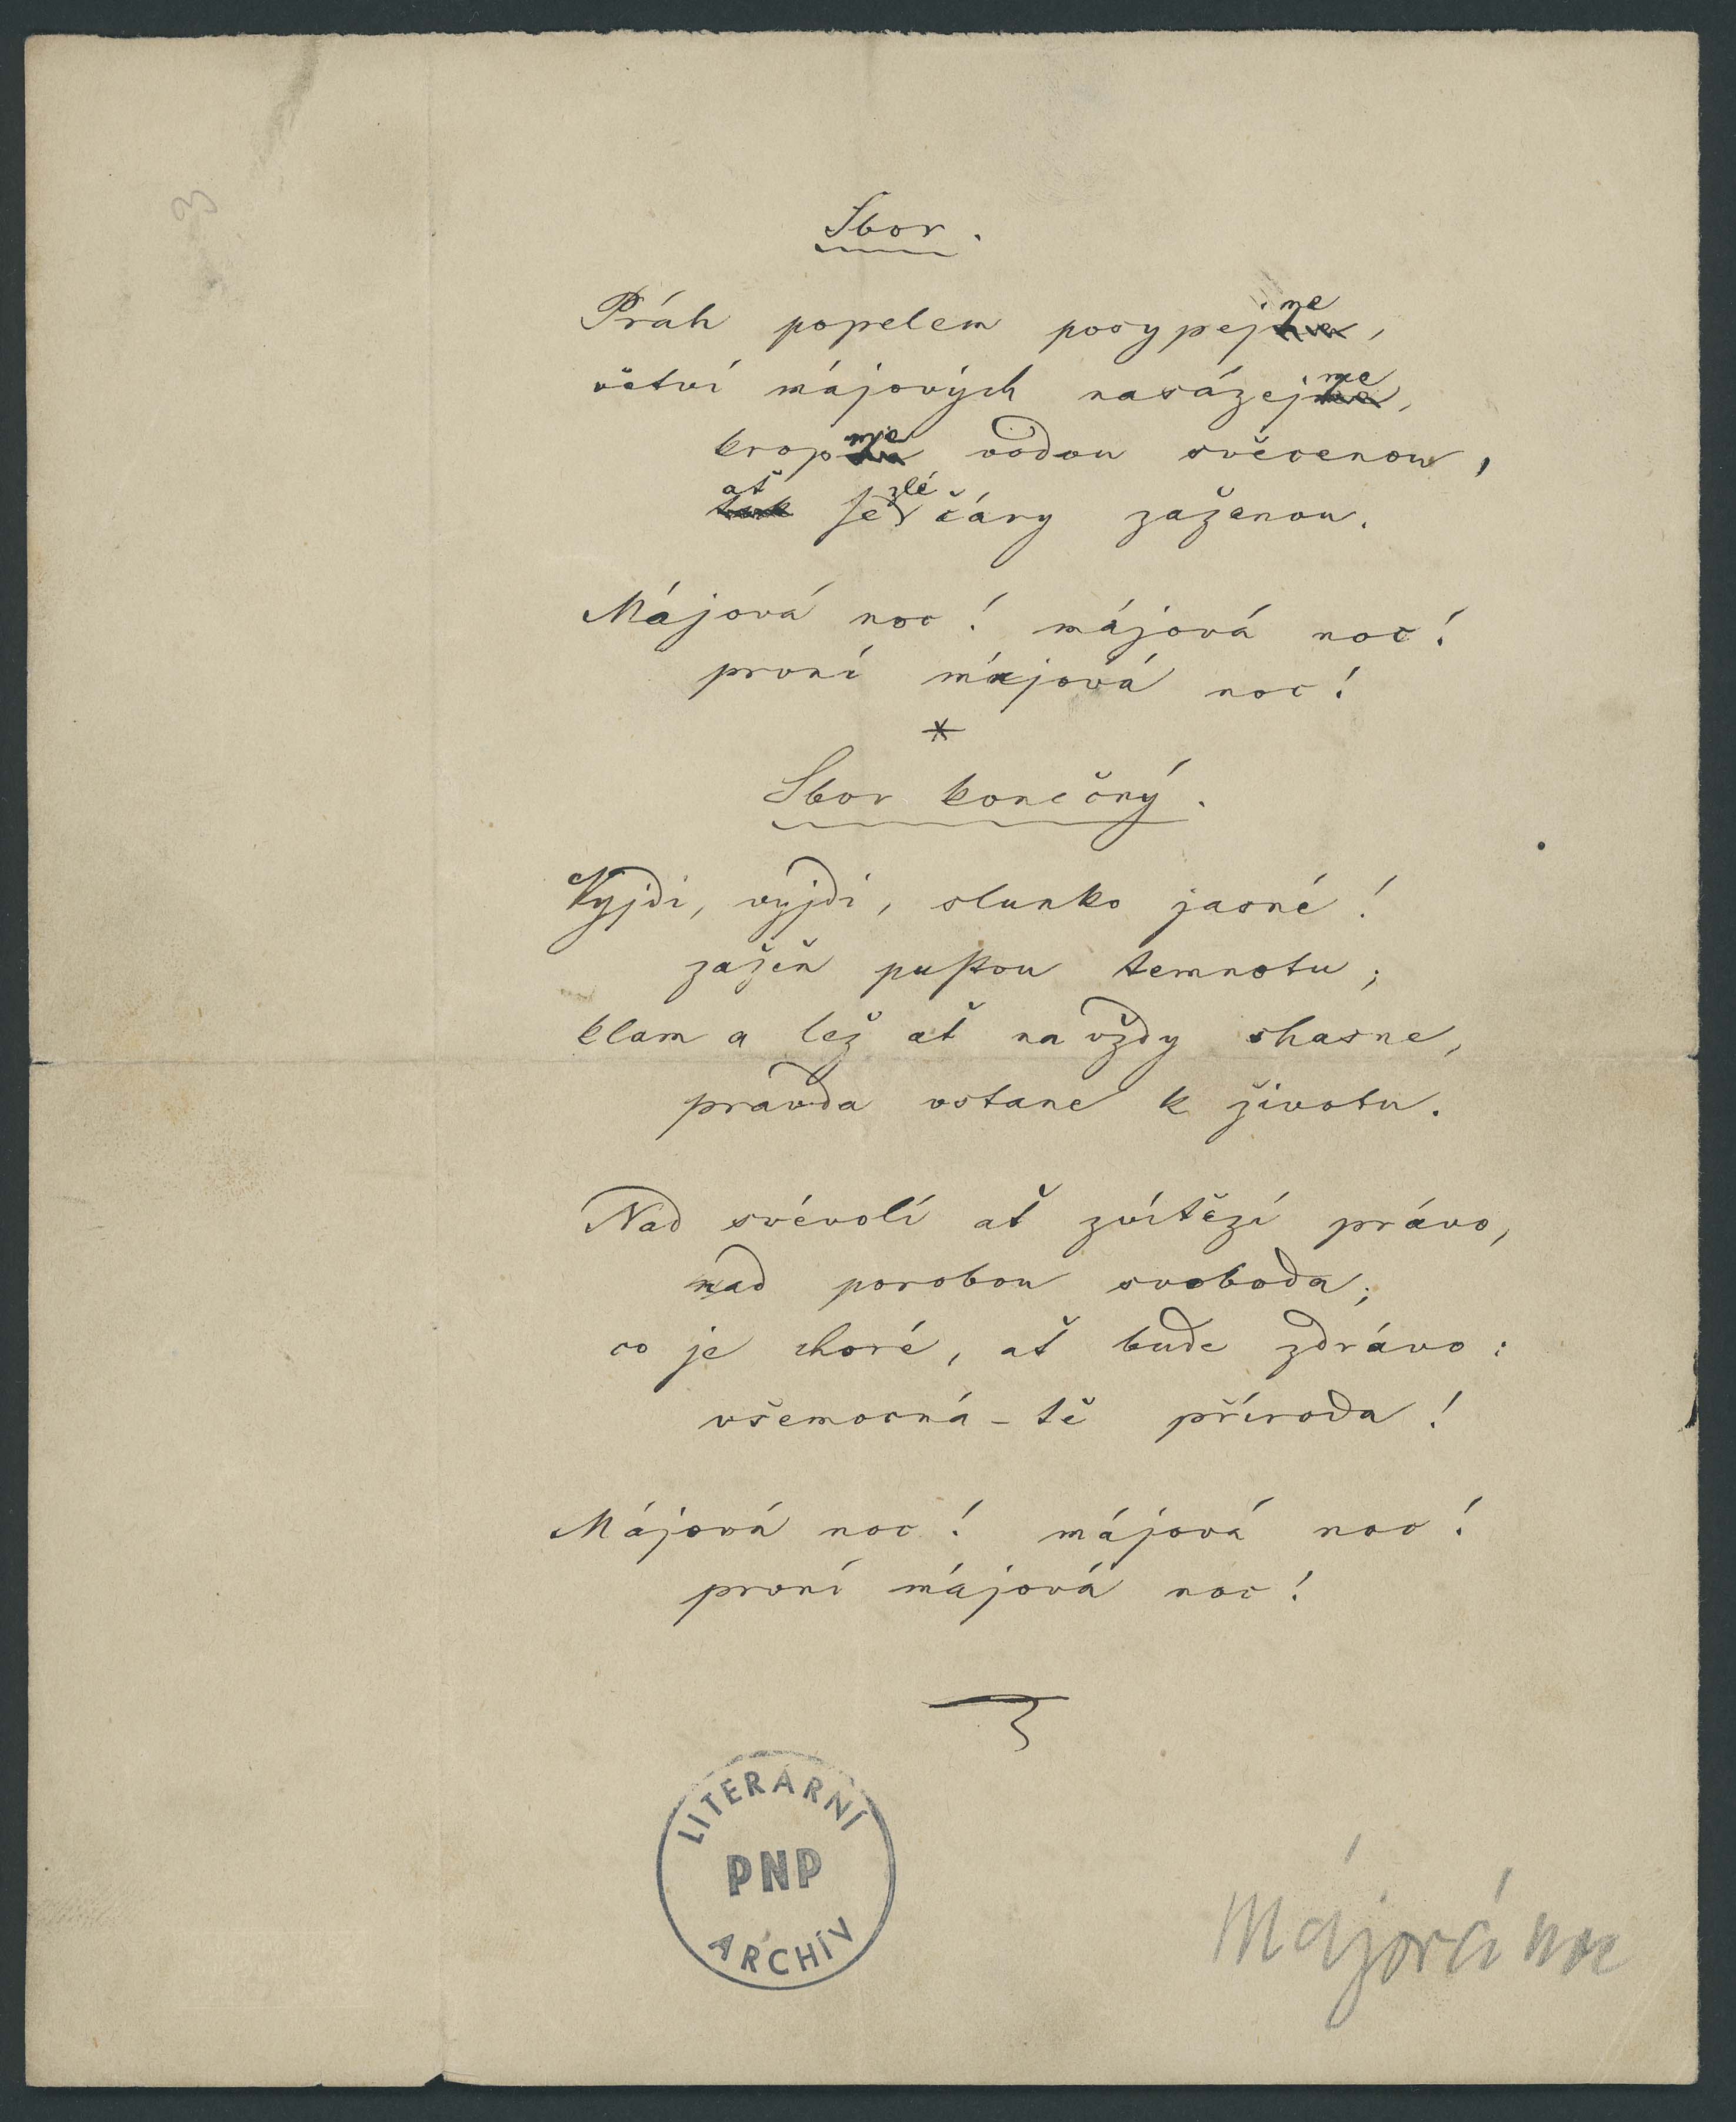 3
Sbor.
Práh popelem posypejme,
větví májových nasázejme,
kropme vodou svěcenou,
ať se zlé čáry zaženou.
Májová noc! májová noc!
první májová noc!
*
Sbor konečný.
Vyjdi, vyjdi, slunko jasné!
zažeň pustou temnotu;
klam a lež ať na vždy shasne,
pravda vstane k životu.
Nad svévolí ať zvítězí právo,
nad porobou svoboda;
co je choré, ať bude zdrávo:
všemocná-tě příroda!
Májová noc! májová noc!
první májová noc!
LITERÁRNÍ
PNP
ARCHÍV
Májová noc